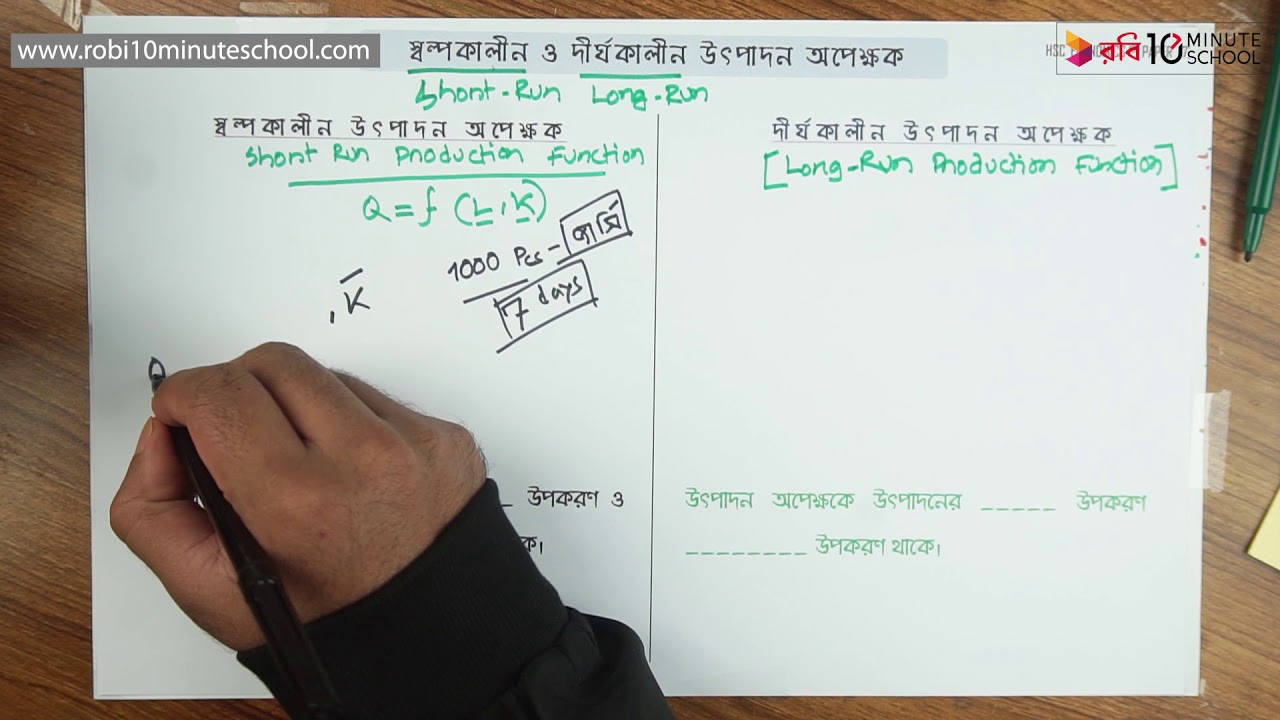 www.robi10minuteschool.com
স্বল্পকালীন ও দীর্ঘকালীন উৎপাদন অপেক্ষক
রবি 10 MINUTE SCHOOL
Short-Run Long-Run
স্বল্পকালীন উৎপাদন অপেক্ষক
Short Run Production Function
Q = f (L, K)
1000 Pcs - জার্সি
7 days
, K̅
Q
উপকরণ ও
দীর্ঘকালীন উৎপাদন অপেক্ষক
[Long-Run Production Function]
উৎপাদন অপেক্ষকে উৎপাদনের _____ উপকরণ
________ উপকরণ থাকে।